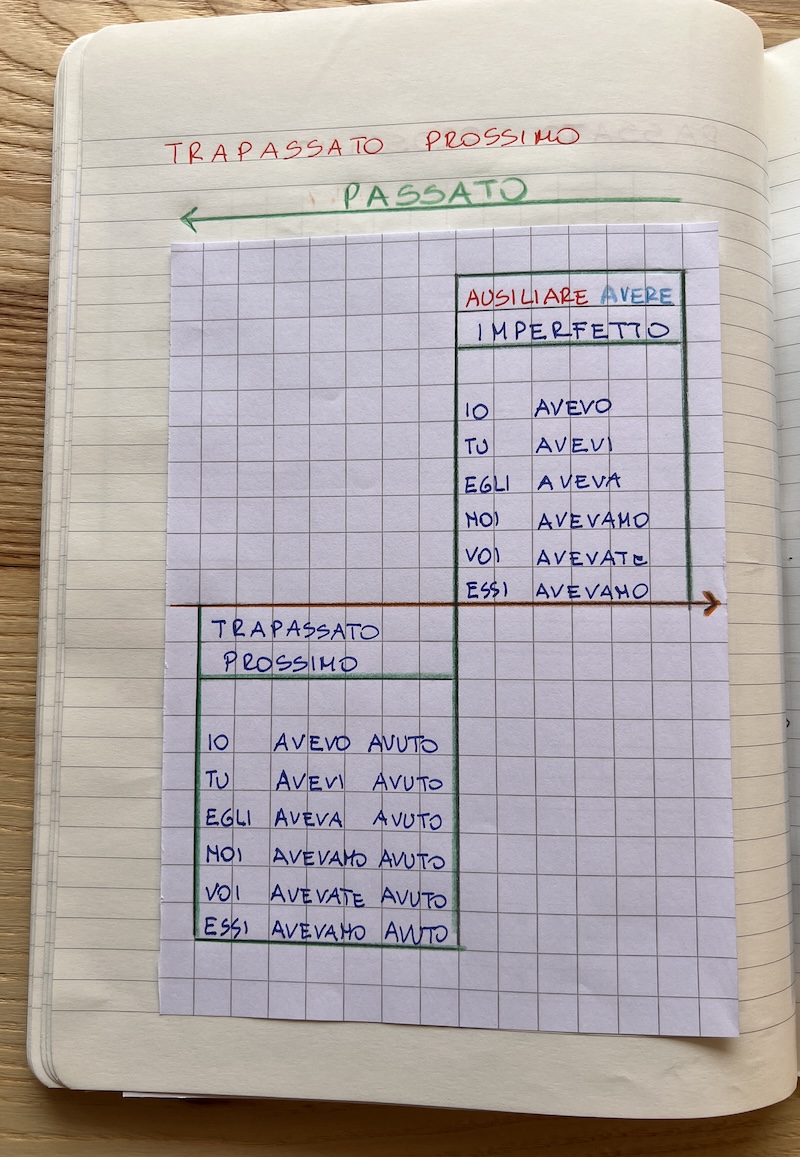 TRAPASSATO PROSSIMO
PASSATO
AUSILIARE AVERE
IMPERFETTO
IO AVEVO
TU AVEVI
EGLI AVEVA
NOI AVEVAMO
VOI AVEVATE
ESSI AVEVAMO
TRAPASSATO
PROSSIMO
IO AVEVO AVUTO
TU AVEVI AVUTO
EGLI AVEVA AVUTO
NOI AVEVAMO AVUTO
VOI AVEVATE AVUTO
ESSI AVEVAMO AVUTO